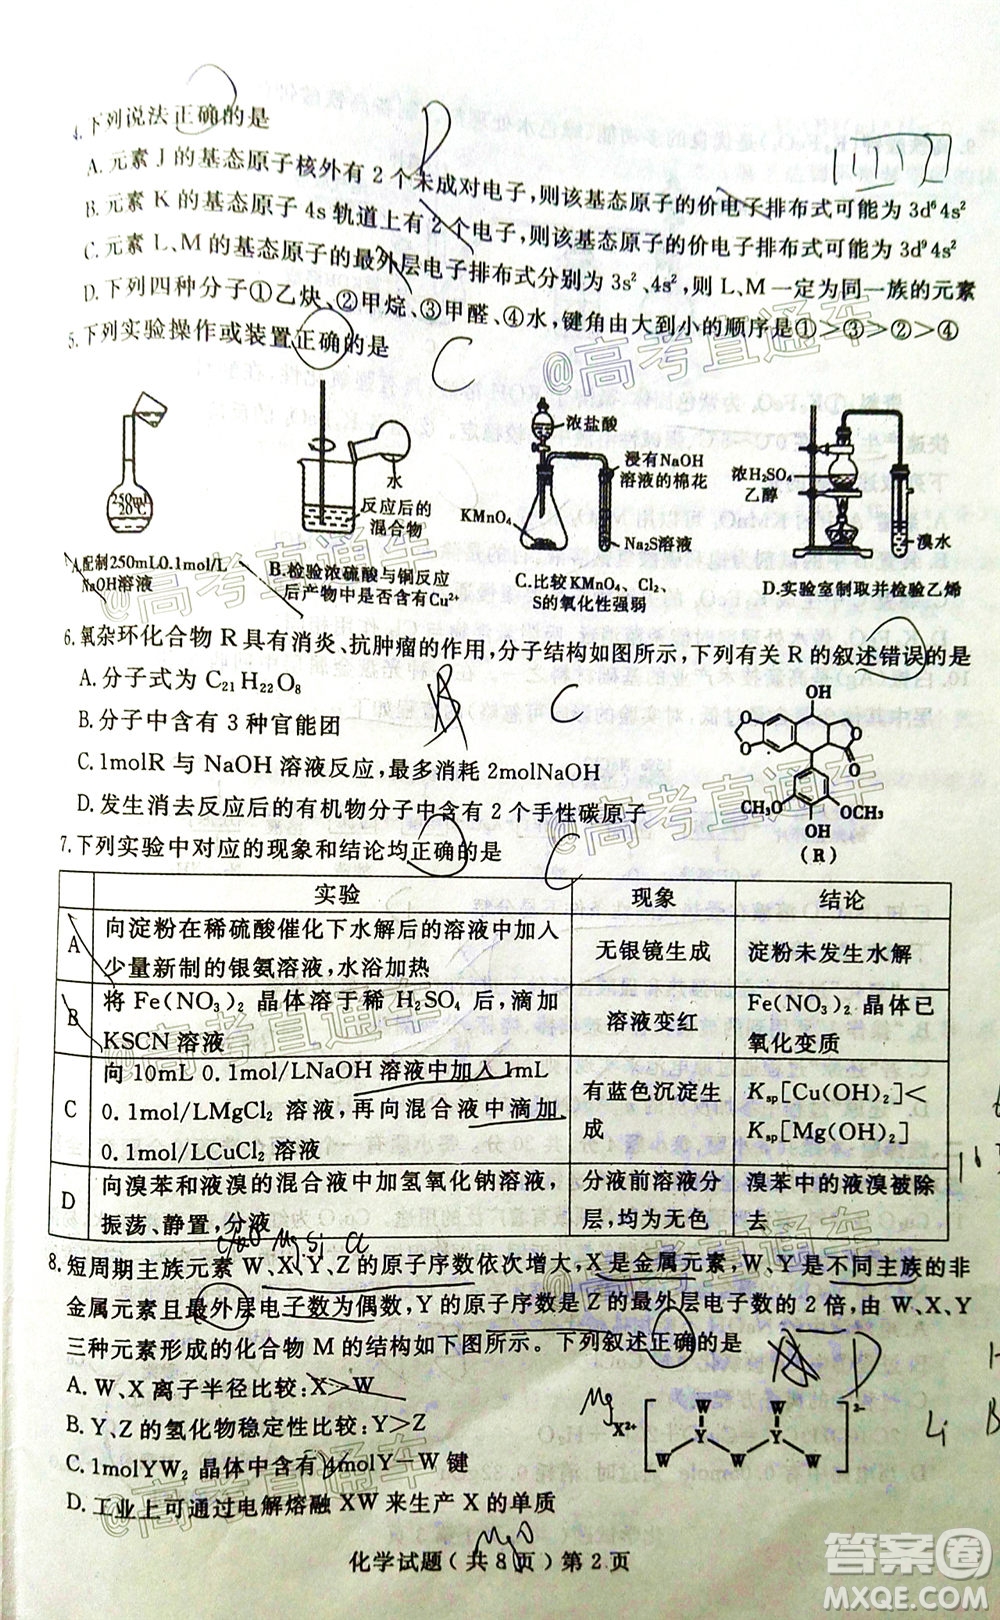 4.下列说法正确的是
A.元素J的基态原子核外有2个未成对电子,则该基态原子的价电子排布式可能为3d⁶4s²
B.元素K的基态原子4s轨道上有2个电子,则该基态原子的价电子排布式可能为3d⁹4s²
C.元素L、M的基态原子的最外层电子排布式分别为3s²、4s²,则L、M一定为同一族的元素
D.下列四种分子①乙炔、②甲烷、③甲醛、④水,键角由大到小的顺序是①>③>②>④
B
5.下列实验操作或装置正确的是
C
@高考直通车
250mL
20℃
水
反应后的
混合物
浓盐酸
浸有NaOH
溶液的棉花
KMnO₄
Na₂S溶液
浓H₂SO₄
乙醇
溴水
A.配制250mL0.1mol/L
NaOH溶液
B.检验浓硫酸与铜反应
后产物中是否含有Cu²⁺
C.比较KMnO₄、Cl₂、
S的氧化性强弱
D.实验室制取并检验乙烯
@高考直通车
6.氧杂环化合物R具有消炎、抗肿瘤的作用,分子结构如图所示,下列有关R的叙述错误的是
A.分子式为C₂₁H₂₂O₈
B.分子中含有3种官能团
C.1molR与NaOH溶液反应,最多消耗2molNaOH
D.发生消去反应后的有机物分子中含有2个手性碳原子
B C
OH
O
O
O
O
CH₃O
OCH₃
OH
(R)
@高考直通车
7.下列实验中对应的现象和结论均正确的是
C
实验 现象 结论
A 向淀粉在稀硫酸催化下水解后的溶液中加入少量新制的银氨溶液,水浴加热 无银镜生成 淀粉未发生水解
B 将Fe(NO₃)₂晶体溶于稀H₂SO₄后,滴加KSCN溶液 溶液变红 Fe(NO₃)₂晶体已氧化变质
C 向10mL 0.1mol/LNaOH溶液中加入1mL 0.1mol/LMgCl₂溶液,再向混合液中滴加0.1mol/LCuCl₂溶液 有蓝色沉淀生成 Ksp[Cu(OH)₂]<Ksp[Mg(OH)₂]
D 向溴苯和液溴的混合液中加氢氧化钠溶液,振荡、静置,分液 分液前溶液分层,均为无色 溴苯中的液溴被除去
@高考直通车
Mg Si Cl
8.短周期主族元素W、X、Y、Z的原子序数依次增大,X是金属元素,W、Y是不同主族的非
金属元素且最外层电子数为偶数,Y的原子序数是Z的最外层电子数的2倍,由W、X、Y
三种元素形成的化合物M的结构如下图所示。下列叙述正确的是
A.W、X离子半径比较:X>W
B.Y、Z的氢化物稳定性比较:Y>Z
C.1molYW₂晶体中含有4molY—W键
D.工业上可通过电解熔融XW来生产X的单质
D
Mg
X²⁺
W W
Y Y
W W W
2-
@高考直通车
MgO
化学试题(共8页)第2页
答案圈
MXQE.COM